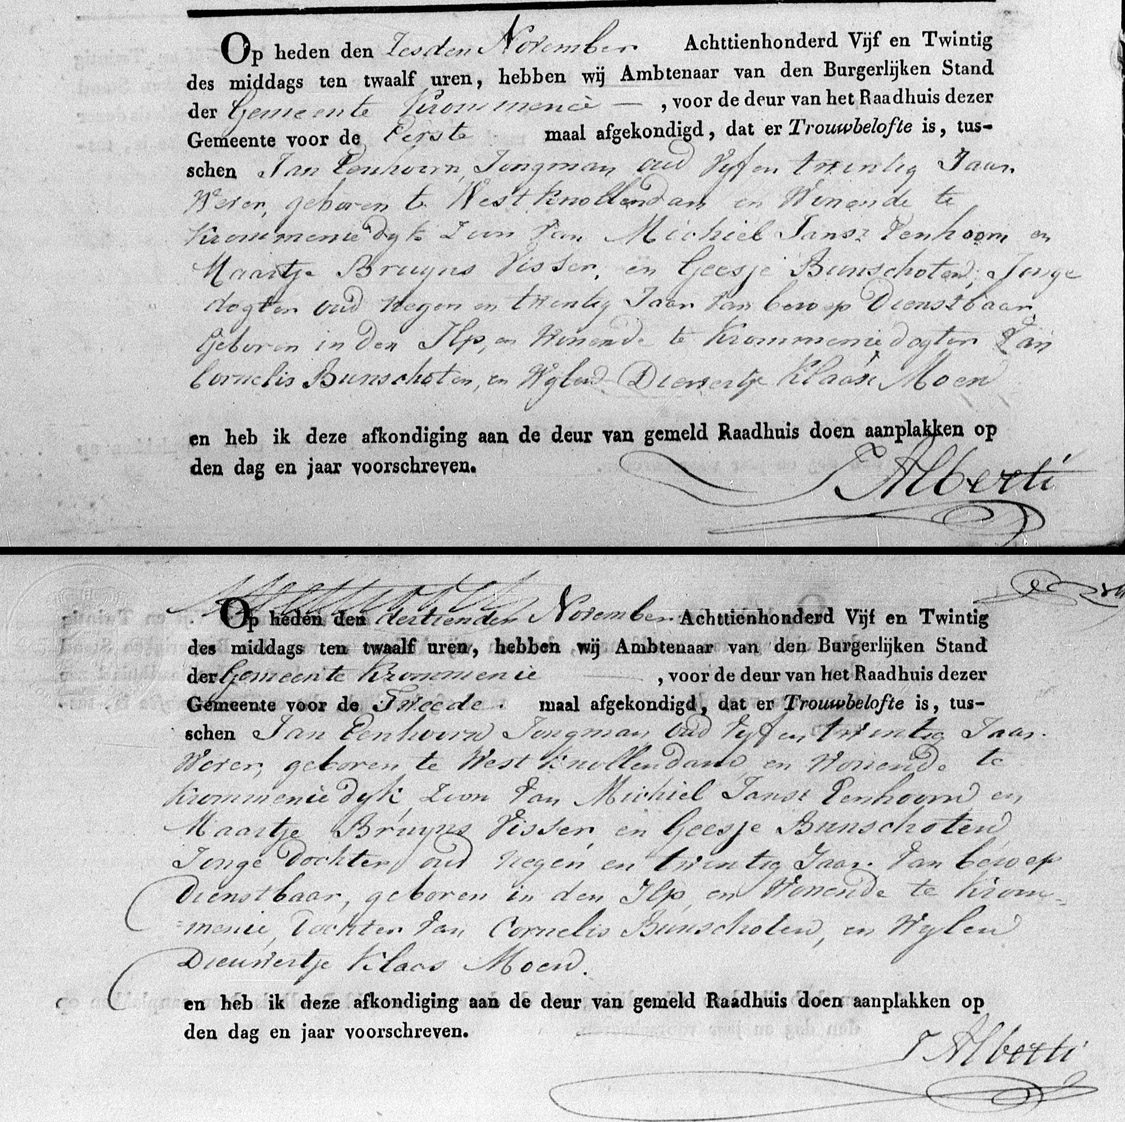 Op heden den Zesden November Achttienhonderd Vijf en Twintig
des middags ten twaalf uren, hebben wij Ambtenaar van den Burgerlijken Stand
der Gemeente Krommenië — , voor de deur van het Raadhuis dezer
Gemeente voor de Eerste maal afgekondigd, dat er Trouwbelofte is, tus-
schen Jan Eenhoorn, Jongman oud Vyf en twintig Jaar
Wever, geboren te West Knollendam en Wonende te
Krommenie dyk Zoon van Michiel Jansz Eenhoorn en
Maartje Bruyns Visser, en Geesje Bunschoten, Jonge
dogter oud negen en twintig Jaar van beroep Dienstbaar
Geboren in den Ilp, en Wonende te Krommenie dogter van
Cornelis Bunschoten, en Wylen Dieuwertje Klaasz Moen
en heb ik deze afkondiging aan de deur van gemeld Raadhuis doen aanplakken op
den dag en jaar voorschreven.
J Alberti
Op heden den dertienden November Achttienhonderd Vijf en Twintig
des middags ten twaalf uren, hebben wij Ambtenaar van den Burgerlijken Stand
der Gemeente Krommenie — , voor de deur van het Raadhuis dezer
Gemeente voor de Tweede maal afgekondigd, dat er Trouwbelofte is, tus-
schen Jan Eenhoorn Jongman oud Vyf en twintig Jaar.
Wever, geboren te West Knollendam en Wonende te
Krommenie dyk, Zoon van Michiel Jansz Eenhoorn en
Maartje Bruyns Visser en Geesje Bunschoten
Jonge dochter, oud negen en twintig Jaar. van beroep
Dienstbaar, geboren in den Ilp, en Wonende te Krom-
menie, dochter van Cornelis Bunschoten, en Wylen
Dieuwertje Klaas Moen.
en heb ik deze afkondiging aan de deur van gemeld Raadhuis doen aanplakken op
den dag en jaar voorschreven.
J Alberti